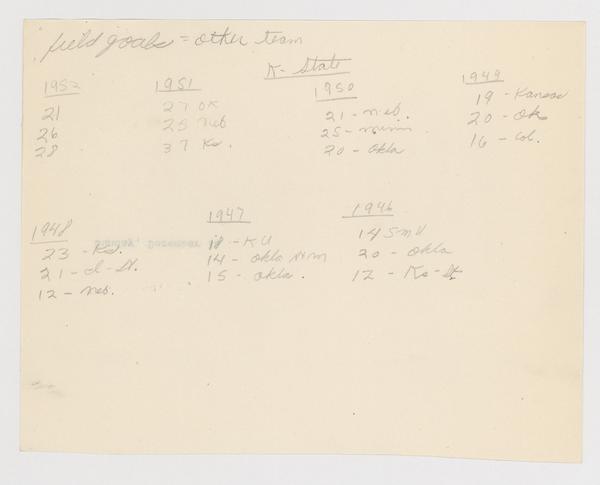 field goals = other team
K-State
1952
21
26
28
1951
27 OK
25 Neb
37 Ks.
1950
21 - neb.
25 - minn.
20 - Okla
1949
19 - Kansas
20 - Ok
16 - Col.
1948
23 - Ks.
21 - I - St.
12 - neb.
1947
- KU
14 - Okla
15 - Okla.
1946
14 SMU
20 - Okla
12 - Ks - St.